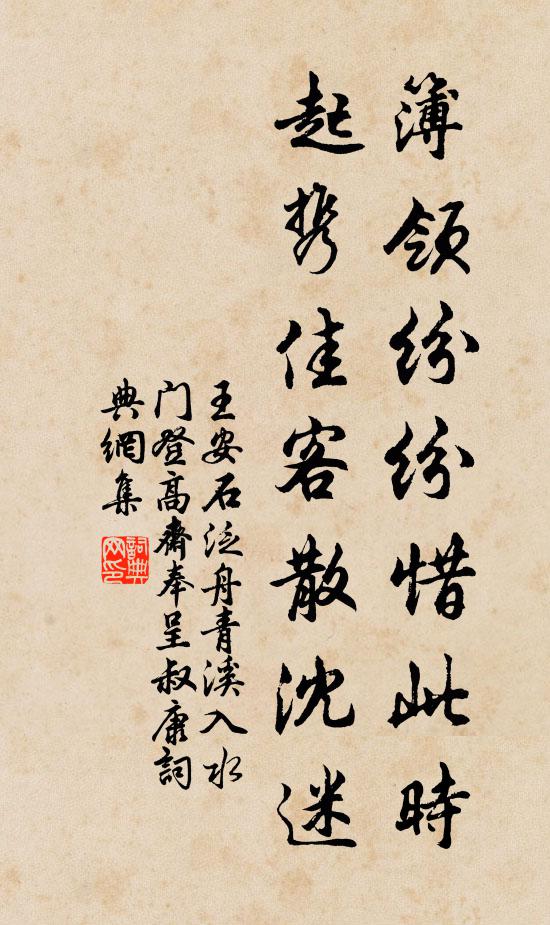 簿領紛紛惜此時
起携佳客散沈迷
王安石泛舟青溪入水
门登高齋奉呈叔康詞
典網集
詞典网印